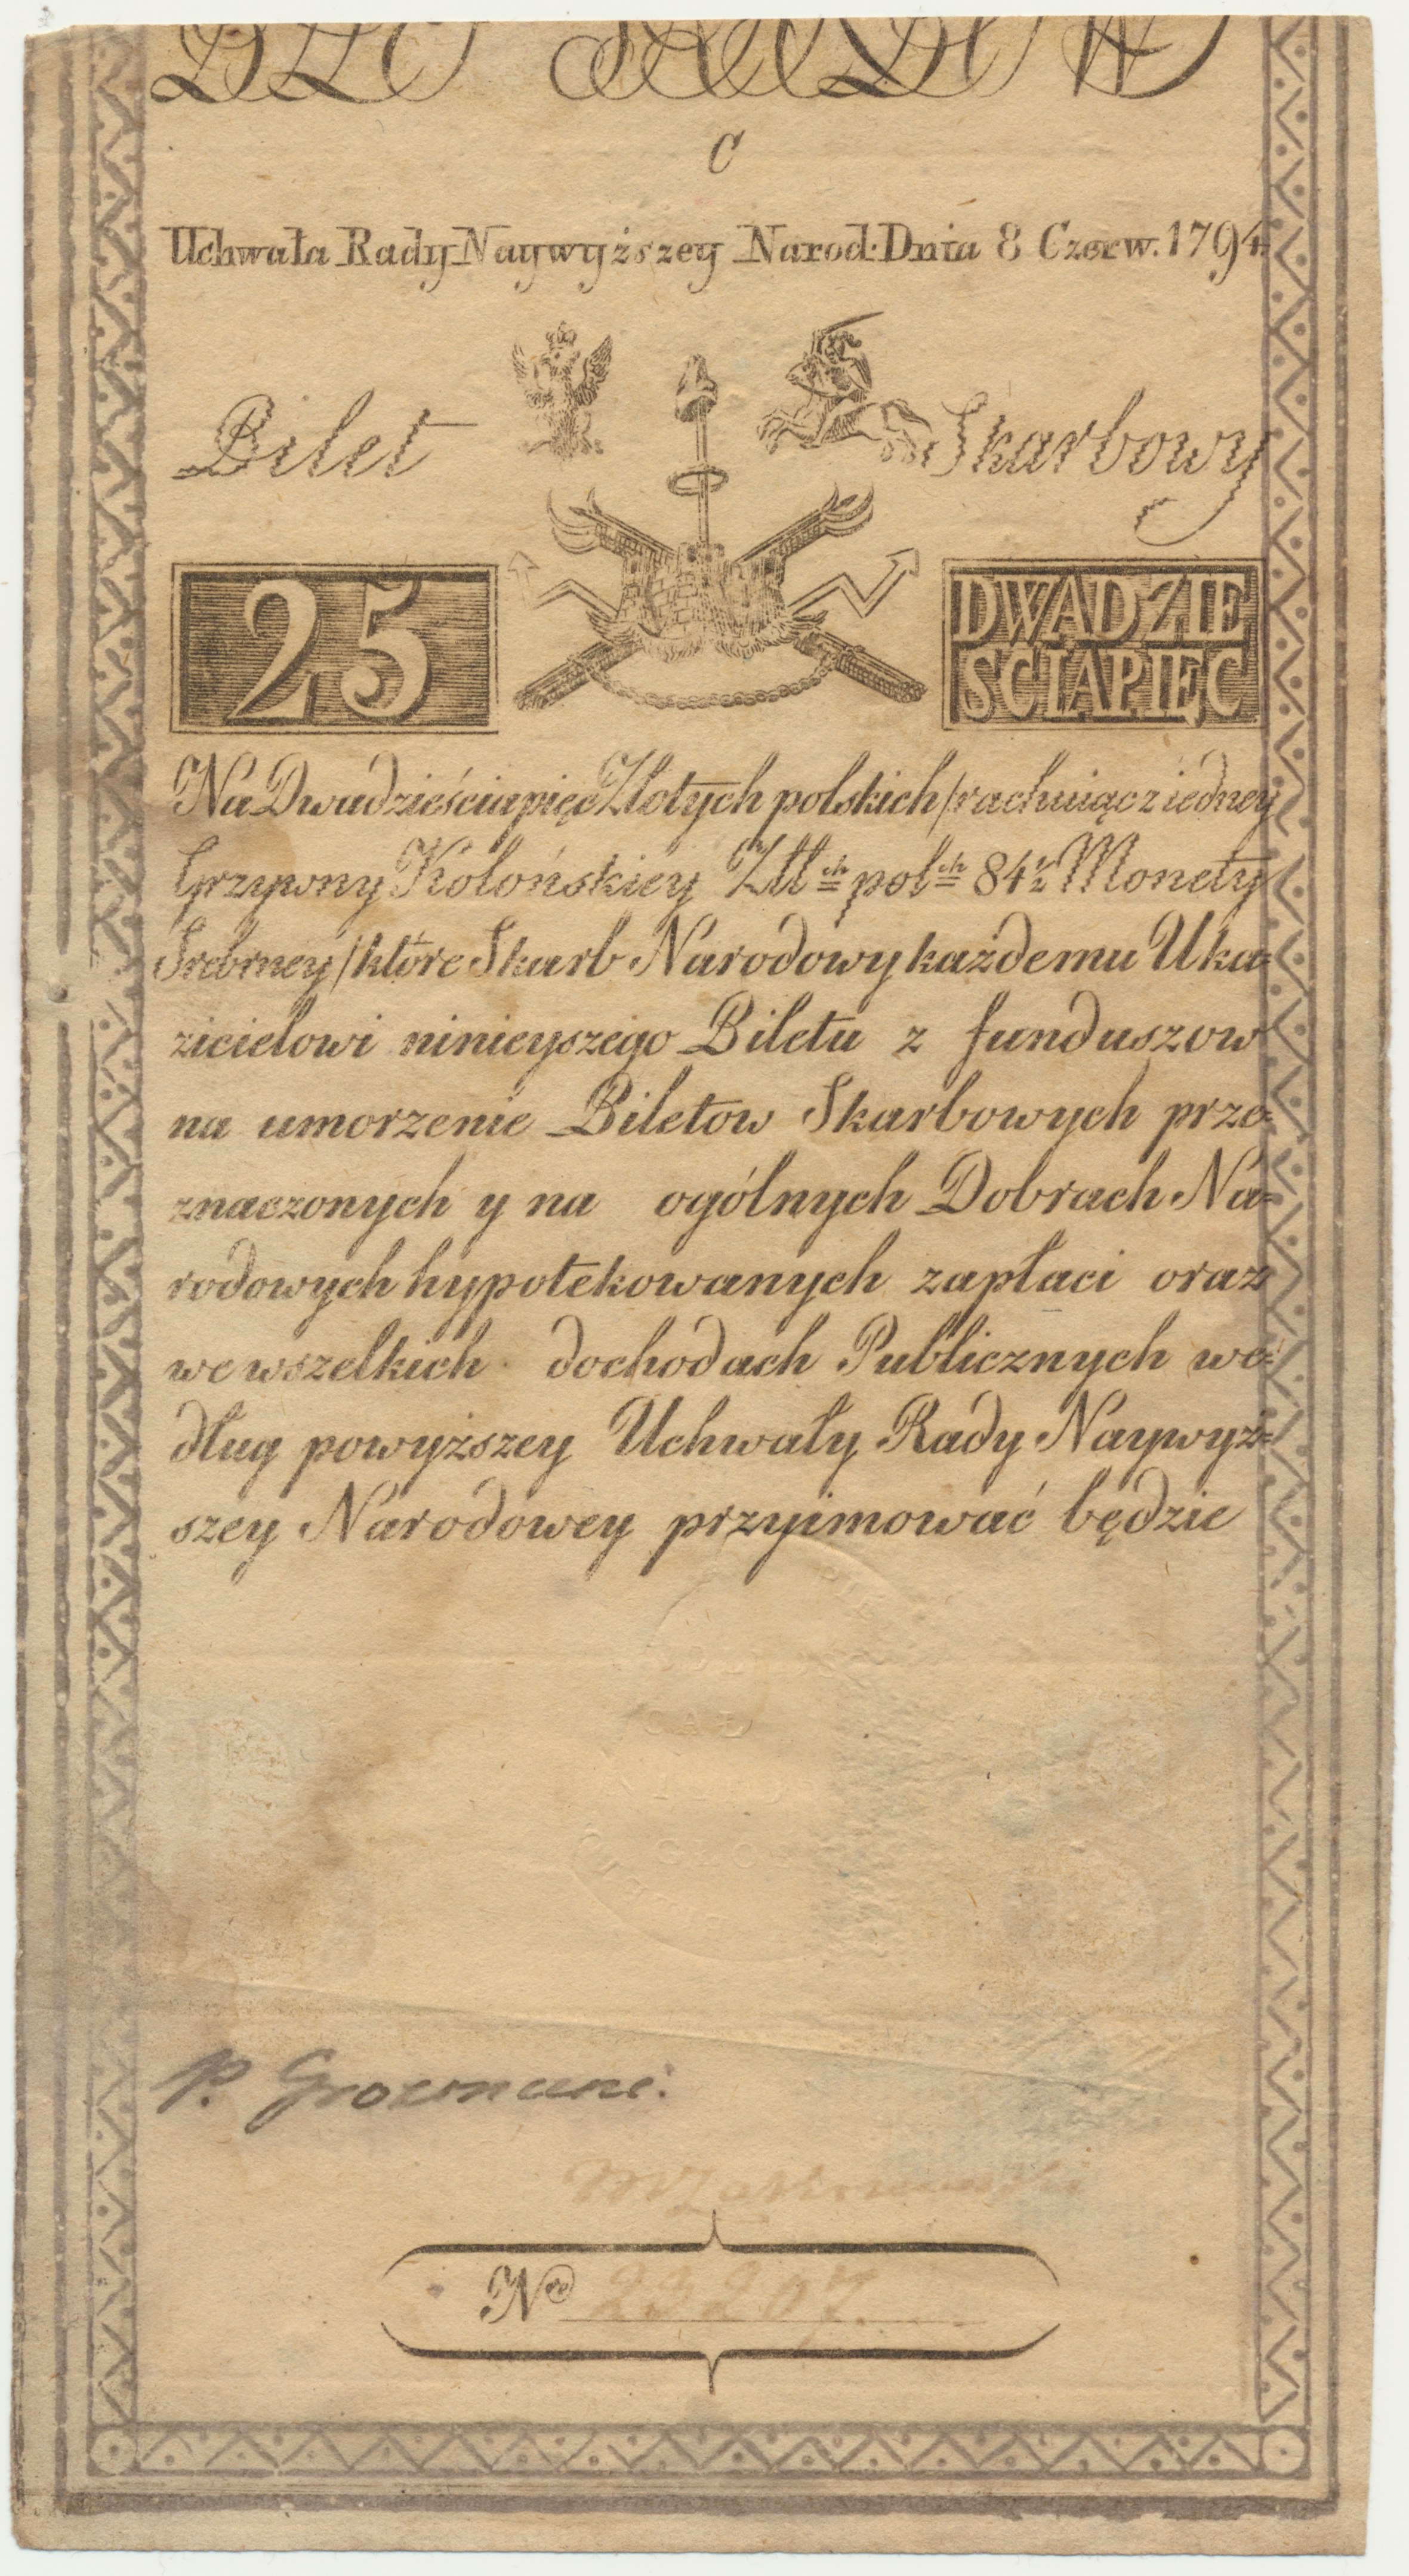 C
Uchwała Rady Naywyższey Narod: Dnia 8 Czerw. 1794.
Bilet Skarbowy
25 DWADZIE
SCIAPIĘC
Na Dwadzieściapięć Złotych polskich /rachuiąc z iedney
Grzywny Kolońskiey Złł ch pol ch 84½ Monety
Srebrney/ które Skarb Narodowy każdemu Uka=
zicielowi ninieyszego Biletu z funduszow
na umorzenie Biletow Skarbowych prze=
znaczonych y na ogólnych Dobrach Na=
rodowych hypotekowanych zapłaci oraz
we wszelkich dochodach Publicznych we=
dług powyższey Uchwały Rady Naywyż=
szey Narodowey przyimować będzie
P. Grozmani.
Nro 23207.